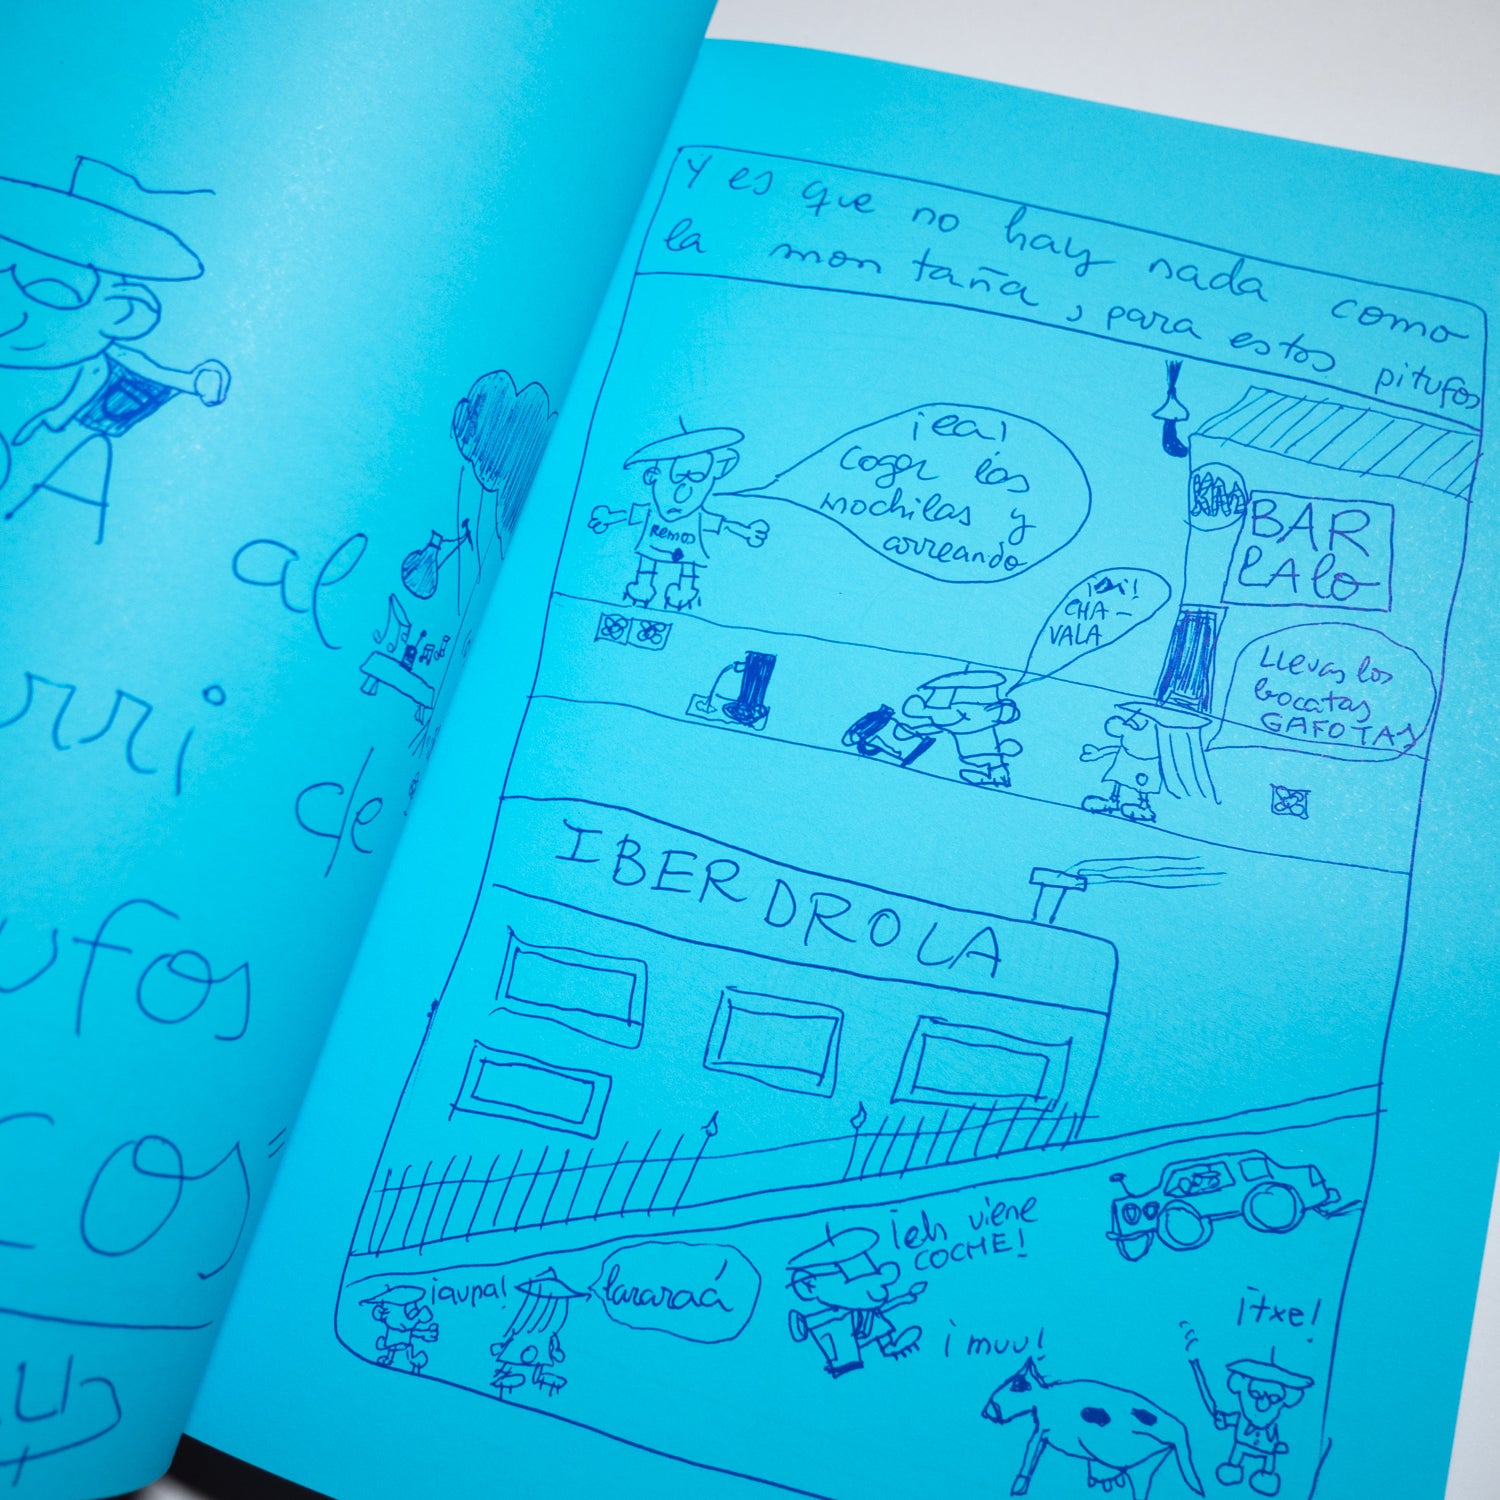 DA
al
rri
de
ufos
cos
Y es que no hay nada como
la montaña, para estos pitufos
¡ea!
coger las
mochilas y
arreando
Remos
KM
BAR
LALO
CHA-
VALA
LLevas los
bocatas
GAFOTAS
IBERDROLA
¡eh viene
COCHE!
¡aupa!
lararaá
¡muu!
¡txe!